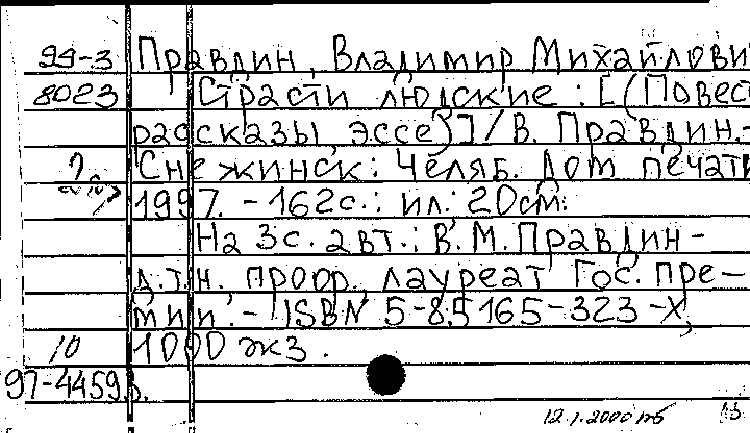 99-3 Правдин, Владимир Михайлови
8023 Страсти людские : [(Повес
рассказы, эссе)] / В. Правдин.-
Снежинск: Челяб. Дом печати
1997. - 162с.: ил; 20см.
На 3с. авт.: В. М. Правдин -
д.т.н. проф., лауреат Гос. пре-
мии. - ISBN 5-85165-323-X,
10 1000 экз.
97-44593.
12.1.2000